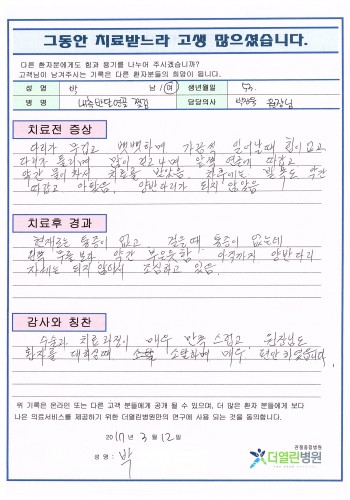 그동안 치료받느라 고생 많으셨습니다.
다른 환자분에게도 힘과 용기를 나누어 주시겠습니까?
고객님이 남겨주시는 기록은 다른 환자분들의 희망이 됩니다.
성 명 박 남 / 여 생년월일 53.
병 명 내측반월연골 찢김 담당의사 원장님
치료전 증상
다리가 무겁고 뻣뻣하며 가끔씩 일어날때 힘이 없고
다리가 붓고
약간 물이 차서 치료를 받았음. 약간
따갑고 아팠음. 양반다리가 되지 않았음
치료후 경과
현재로는 통증이 없고 걸을때 통증이 없는데
왼쪽 무릎 보다 약간 부은듯함 아직까지 양반다리
자세는 되지 않아서 조심하고 있음.
감사와 칭찬
수술과 치료과정이 매우 만족스럽고 원장님도
환자를 대하실때 소탈하며 매우 편안하였습니다.
위 기록은 온라인 또는 다른 고객 분들에게 공개 될 수 있으며, 더 많은 환자 분들에게 보다
나은 의료서비스를 제공하기 위한 더열린병원만의 연구에 사용 되는 것을 동의합니다.
2017 년 3 월 12 일
성 명 : 박
관절중점병원
더열린병원